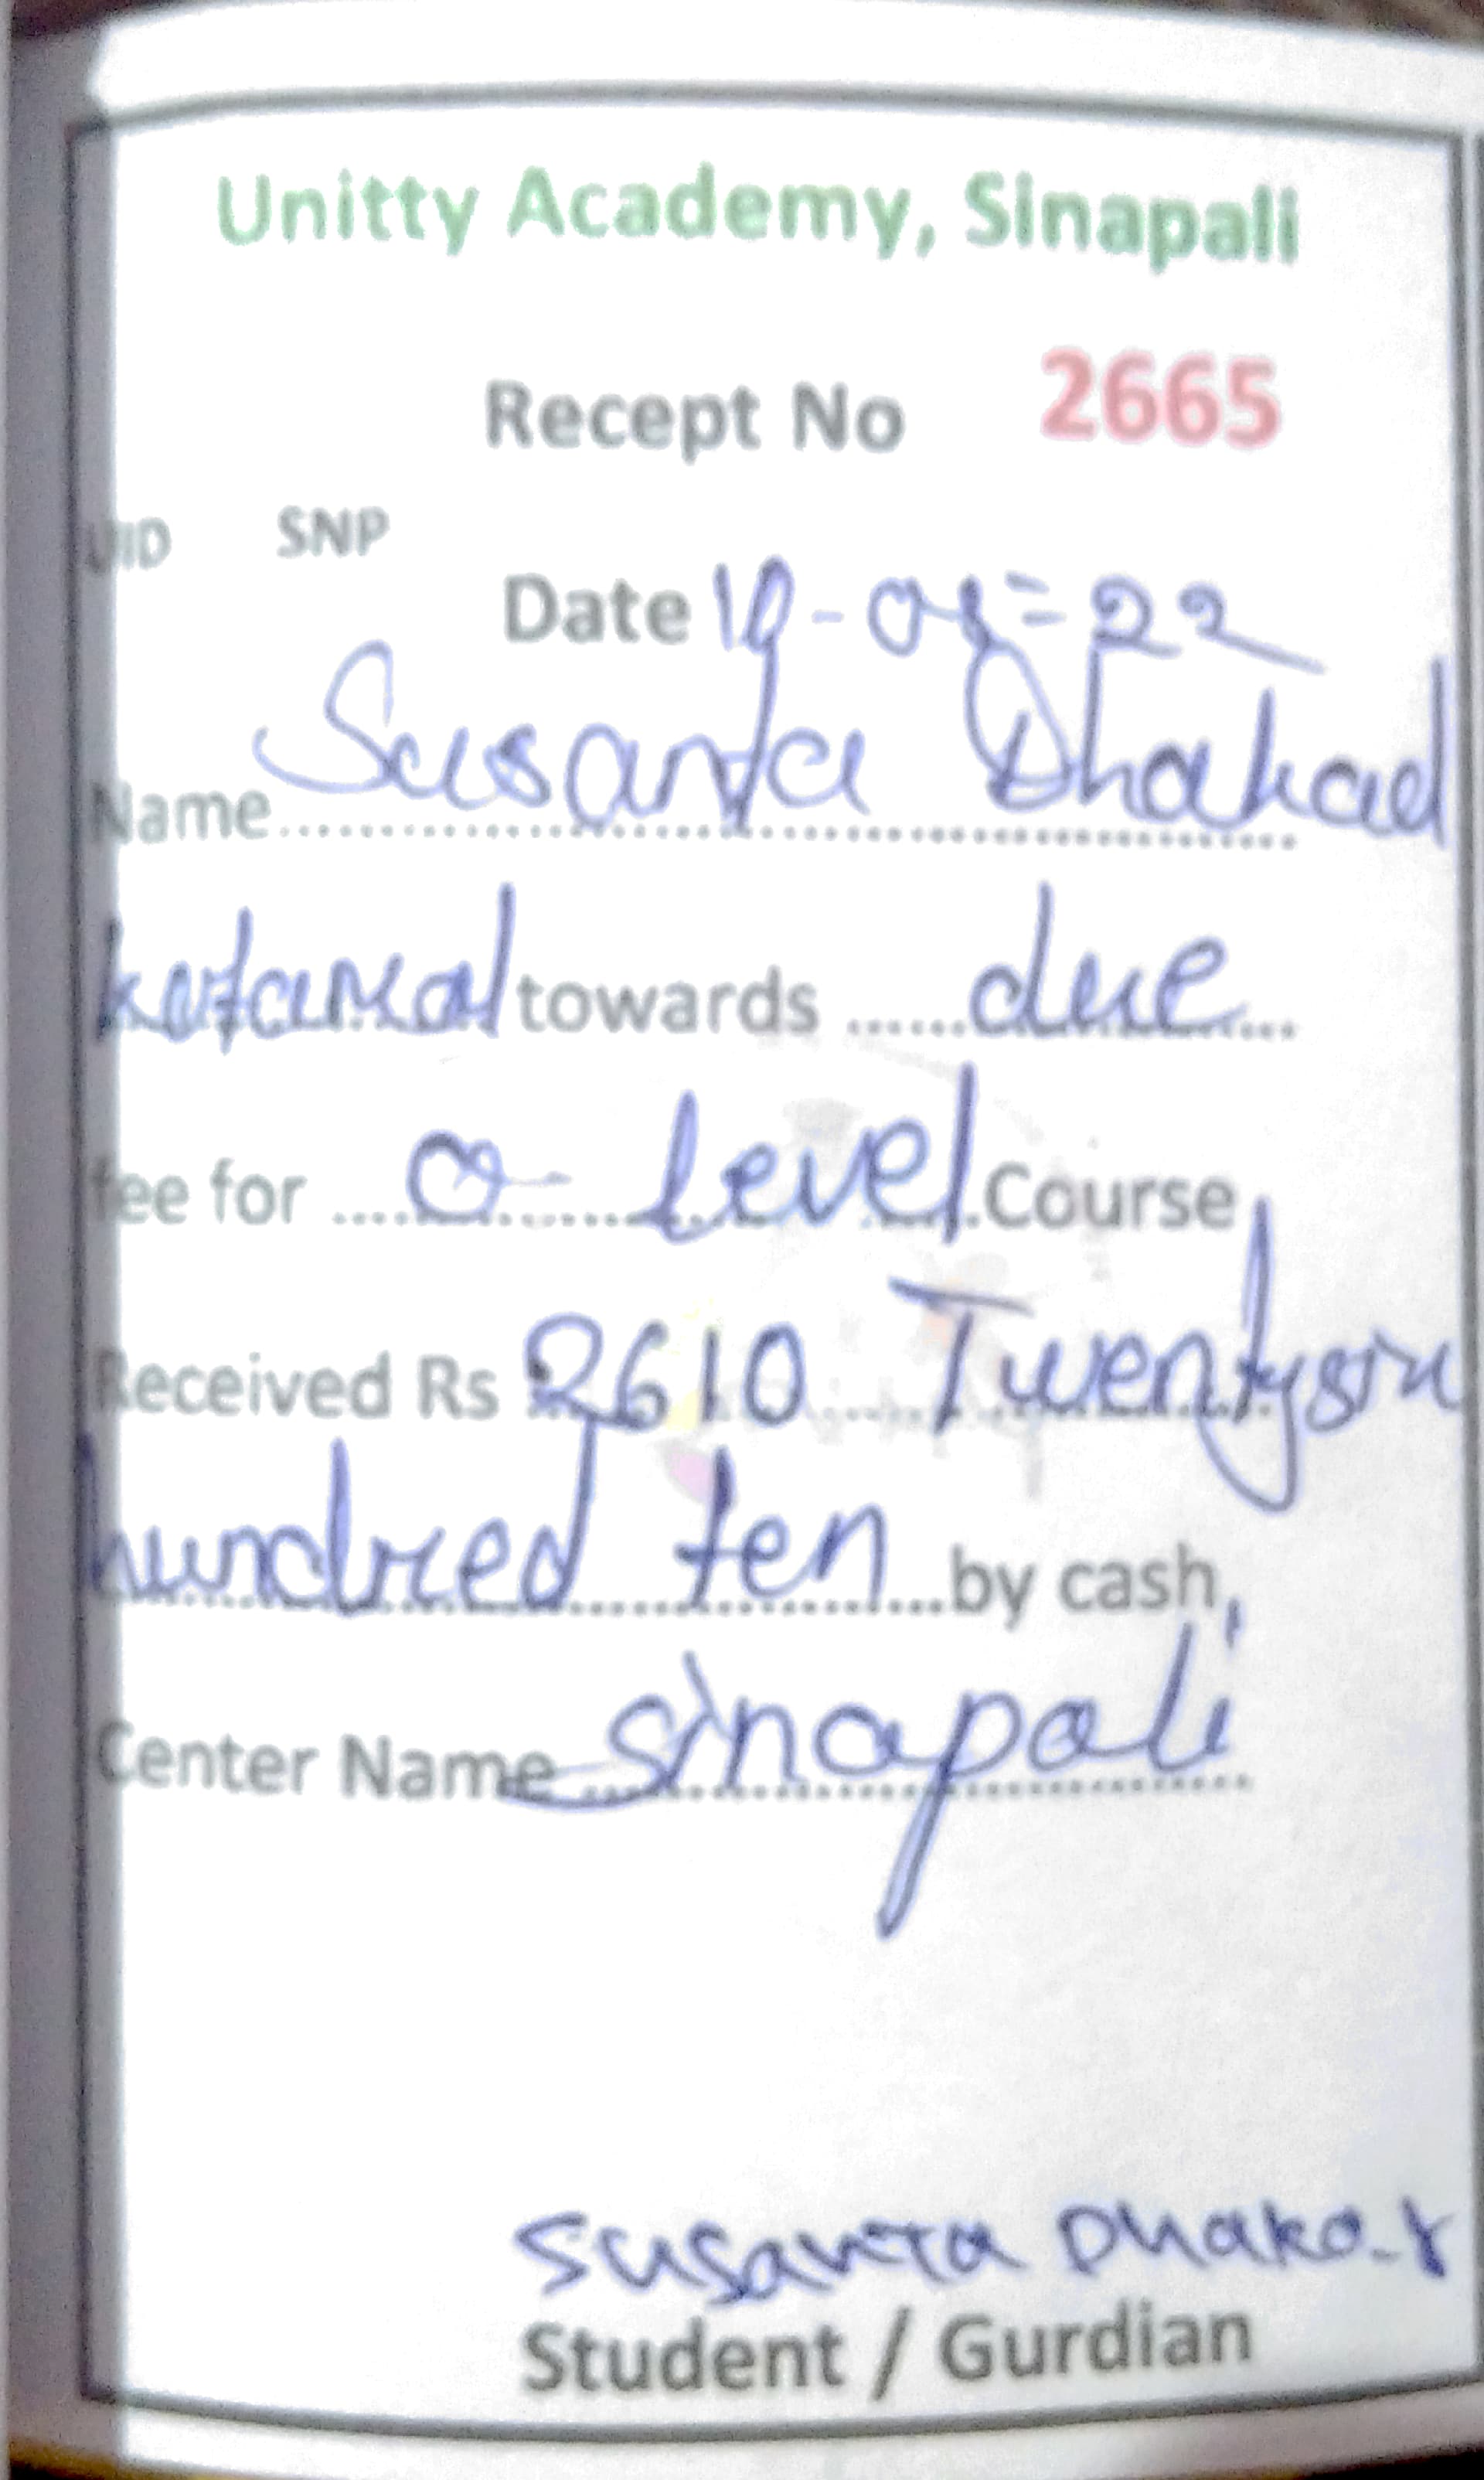 Unitty Academy, Sinapali
Recept No 2665
UID SNP
Date -22
Name Susanta Dhakad
towards due
fee for O-level Course
Received Rs 2610 Twentysix
hundred ten by cash,
Center Name Sinapali
Susanta Dhakar
Student / Gurdian